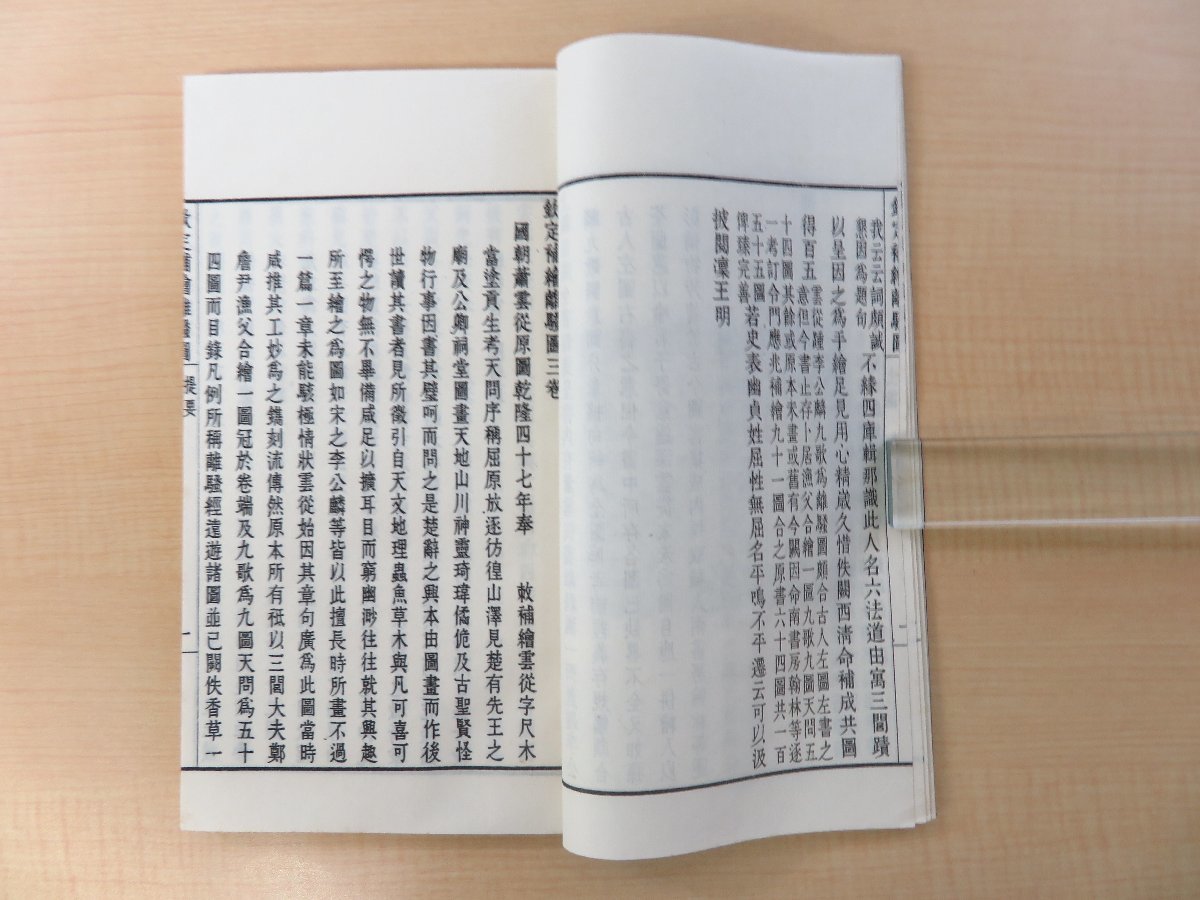 我云云詞頗誠
懇因爲題句
不緣四庫輯那識此人名六法道由寓三閭蹟
以呈因之爲手繪足見用心精歲久惜佚闕西清命補成共圖
得百五
雲從踵李公麟九歌爲離騷圖頗合古人左圖右書之
意但今書止存卜居漁父合繪一圖九歌九圖天問五
十四圖其餘或原本未畫或舊有今闕因命南書房翰林等逐
一考訂令門應兆補繪九十一圖合之原書六十四圖共一百
五十五圖
俾臻完善
若史表幽貞姓屈性無屈名平鳴不平遷云可以汲
披閱凜王明
欽定補繪離騷圖三卷
國朝蕭雲從原圖乾隆四十七年奉 敕補繪雲從字尺木
當塗貢生考天問序稱屈原放逐彷徨山澤見楚有先王之
廟及公卿祠堂圖畫天地山川神靈琦瑋僪佹及古聖賢怪
物行事因書其壁呵而問之是楚辭之興本由圖畫而作後
世讀其書者見所徵引自天文地理蟲魚草木與凡可喜可
愕之物無不畢備咸足以擴耳目而窮幽渺往往就其興趣
所至繪之爲圖如宋之李公麟等皆以此擅長時所畫不過
一篇一章未能駭極情狀雲從始因其章句廣爲此圖當時
咸推其工妙爲之鐫刻流傳然原本所有祗以三閭大夫鄭
詹尹漁父合繪一圖冠於卷端及九歌爲九圖天問爲五十
四圖而目錄凡例所稱離騷經遠遊諸圖並已闕佚香草一
欽定補繪離騷圖 提要 二